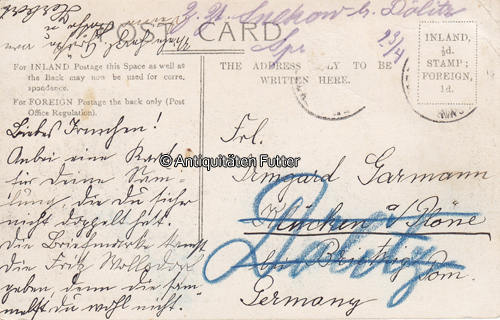 z. Zt. Suckow b. Dölitz
23/4
POST CARD
For INLAND Postage this Space as well as
the Back may now be used for corre-
spondence.
For FOREIGN Postage the back only (Post
Office Regulation).
THE ADDRESS ONLY TO BE
WRITTEN HERE.
INLAND,
½d.
STAMP;
FOREIGN,
1d.
Liebes Irmchen!
Anbei eine Karte
für Deine Samm-
lung, die Du sicher
nicht doppelt hast.
Die Briefmarke kannst
Du Fritz
geben, denn die sam-
melst Du wohl nicht.
© Antiquitäten Futter
Frl.
Irmgard Garmann
Klücken a/Plöne
bei Pom.
Dölitz
Germany